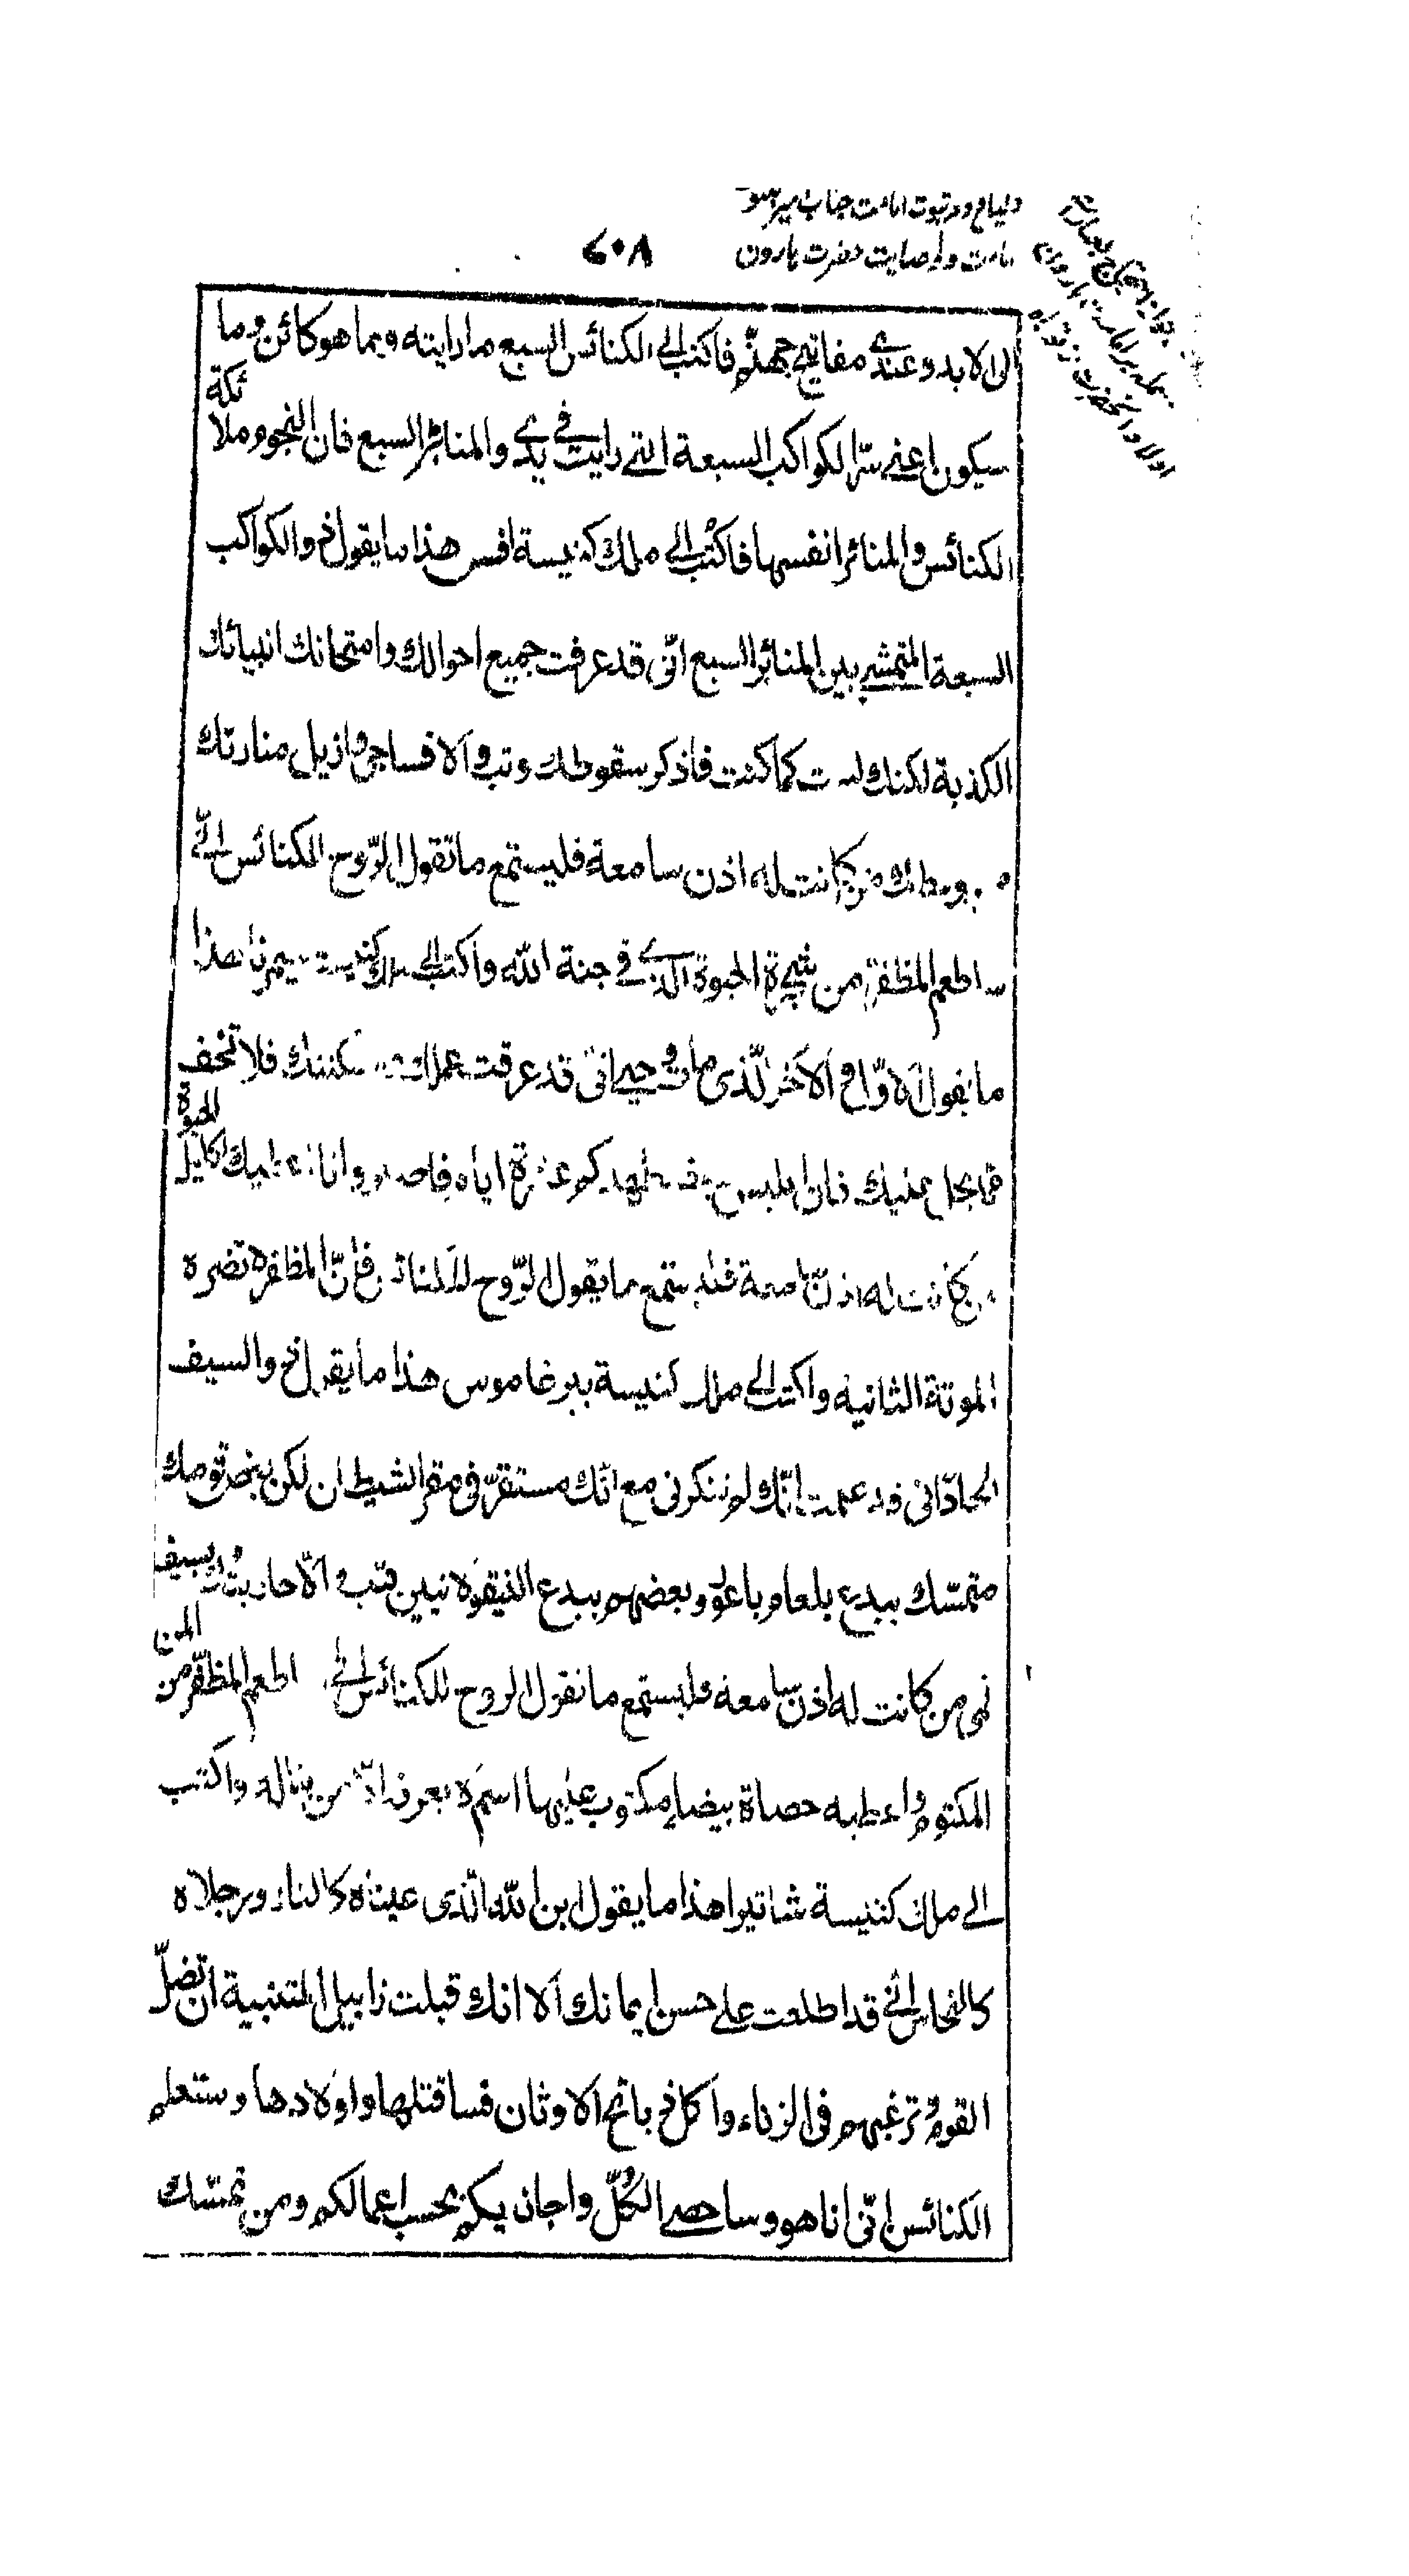 دلیل دوم ثبوت امامت جناب امیر
امامت و وصایت حضرت هارون
۶۰۸
الى الابد وعندي مفاتيح جهنّم فاكتب الى الكنائس السبع ما رايته وبما هو كائن وما
سيكون اعني سرّ الكواكب السبعة التي رايت في يدي والمنائر السبع فان النجوم ملائكة
الكنائس والمنائر انفسها فاكتب الى ملك كنيسة افسس هذا ما يقول ذو الكواكب
السبعة المتمشي بين المنائر السبع انّي قد عرفت جميع احوالك وامتحانك انبيائك
الكذبة لكنك لست كما كنت فاذكر سقوطك وتب والا فساجئ وازيل منارتك
من وسطك من كانت له اذن سامعة فليستمع ما تقول الرّوح الكنائس انّي
ساطعم المظفر من شجرة الحيوة الذي في جنة الله واكتب الى ملك كنيست سيمرنا هذا
ما يقول الاوّل والآخر الّذي مات وحي انّي قد عرفت عملك مسكنتك فلا تخف
مما يحل عليك فان ابليس اياه فاصبر وانا اكليل الحيوة
كانت له اذن سامعة فليستمع ما يقول الرّوح فانّ المظفر لا تضره
الموتة الثانيه واكتب الى ملك كنيسة ببرغاموس هذا ما يقول ذو السيف
الحادّ انى قد علمت انّك لم تنكرنى مع انّك مستقرّ فى مقر الشيطان لكن بعض قومك
متمسّك ببدع بلعام باعور وبعضهم ببدع النيقولانيين فتب والّا حاربتك بسيف
فمى من كانت له اذن سامعة فليستمع ما تقول الروح للكنائس انّي اطعم المظفّر من المن
المكتوم واعطيه حصاة بيضاء مكتوب عليها اسم لا يعرفه الّا من يناله واكتب
الى ملك كنيسة شاتيرا هذا ما يقول ابن الله الّذى عيناه كالنار ورجلاه
كالنحاس انّي قد اطلعت على حسن ايمانك الا انك قبلت زابيل المتنبية ان تضلّ
القوم وترغبهم فى الزناء واكل ذبائح الاوثان فساقتلها واولادها وستعلم
الكنائس انّى انا هو وساحصى الكلّ واجازيكم بحسب اعمالكم ومن تمسّك